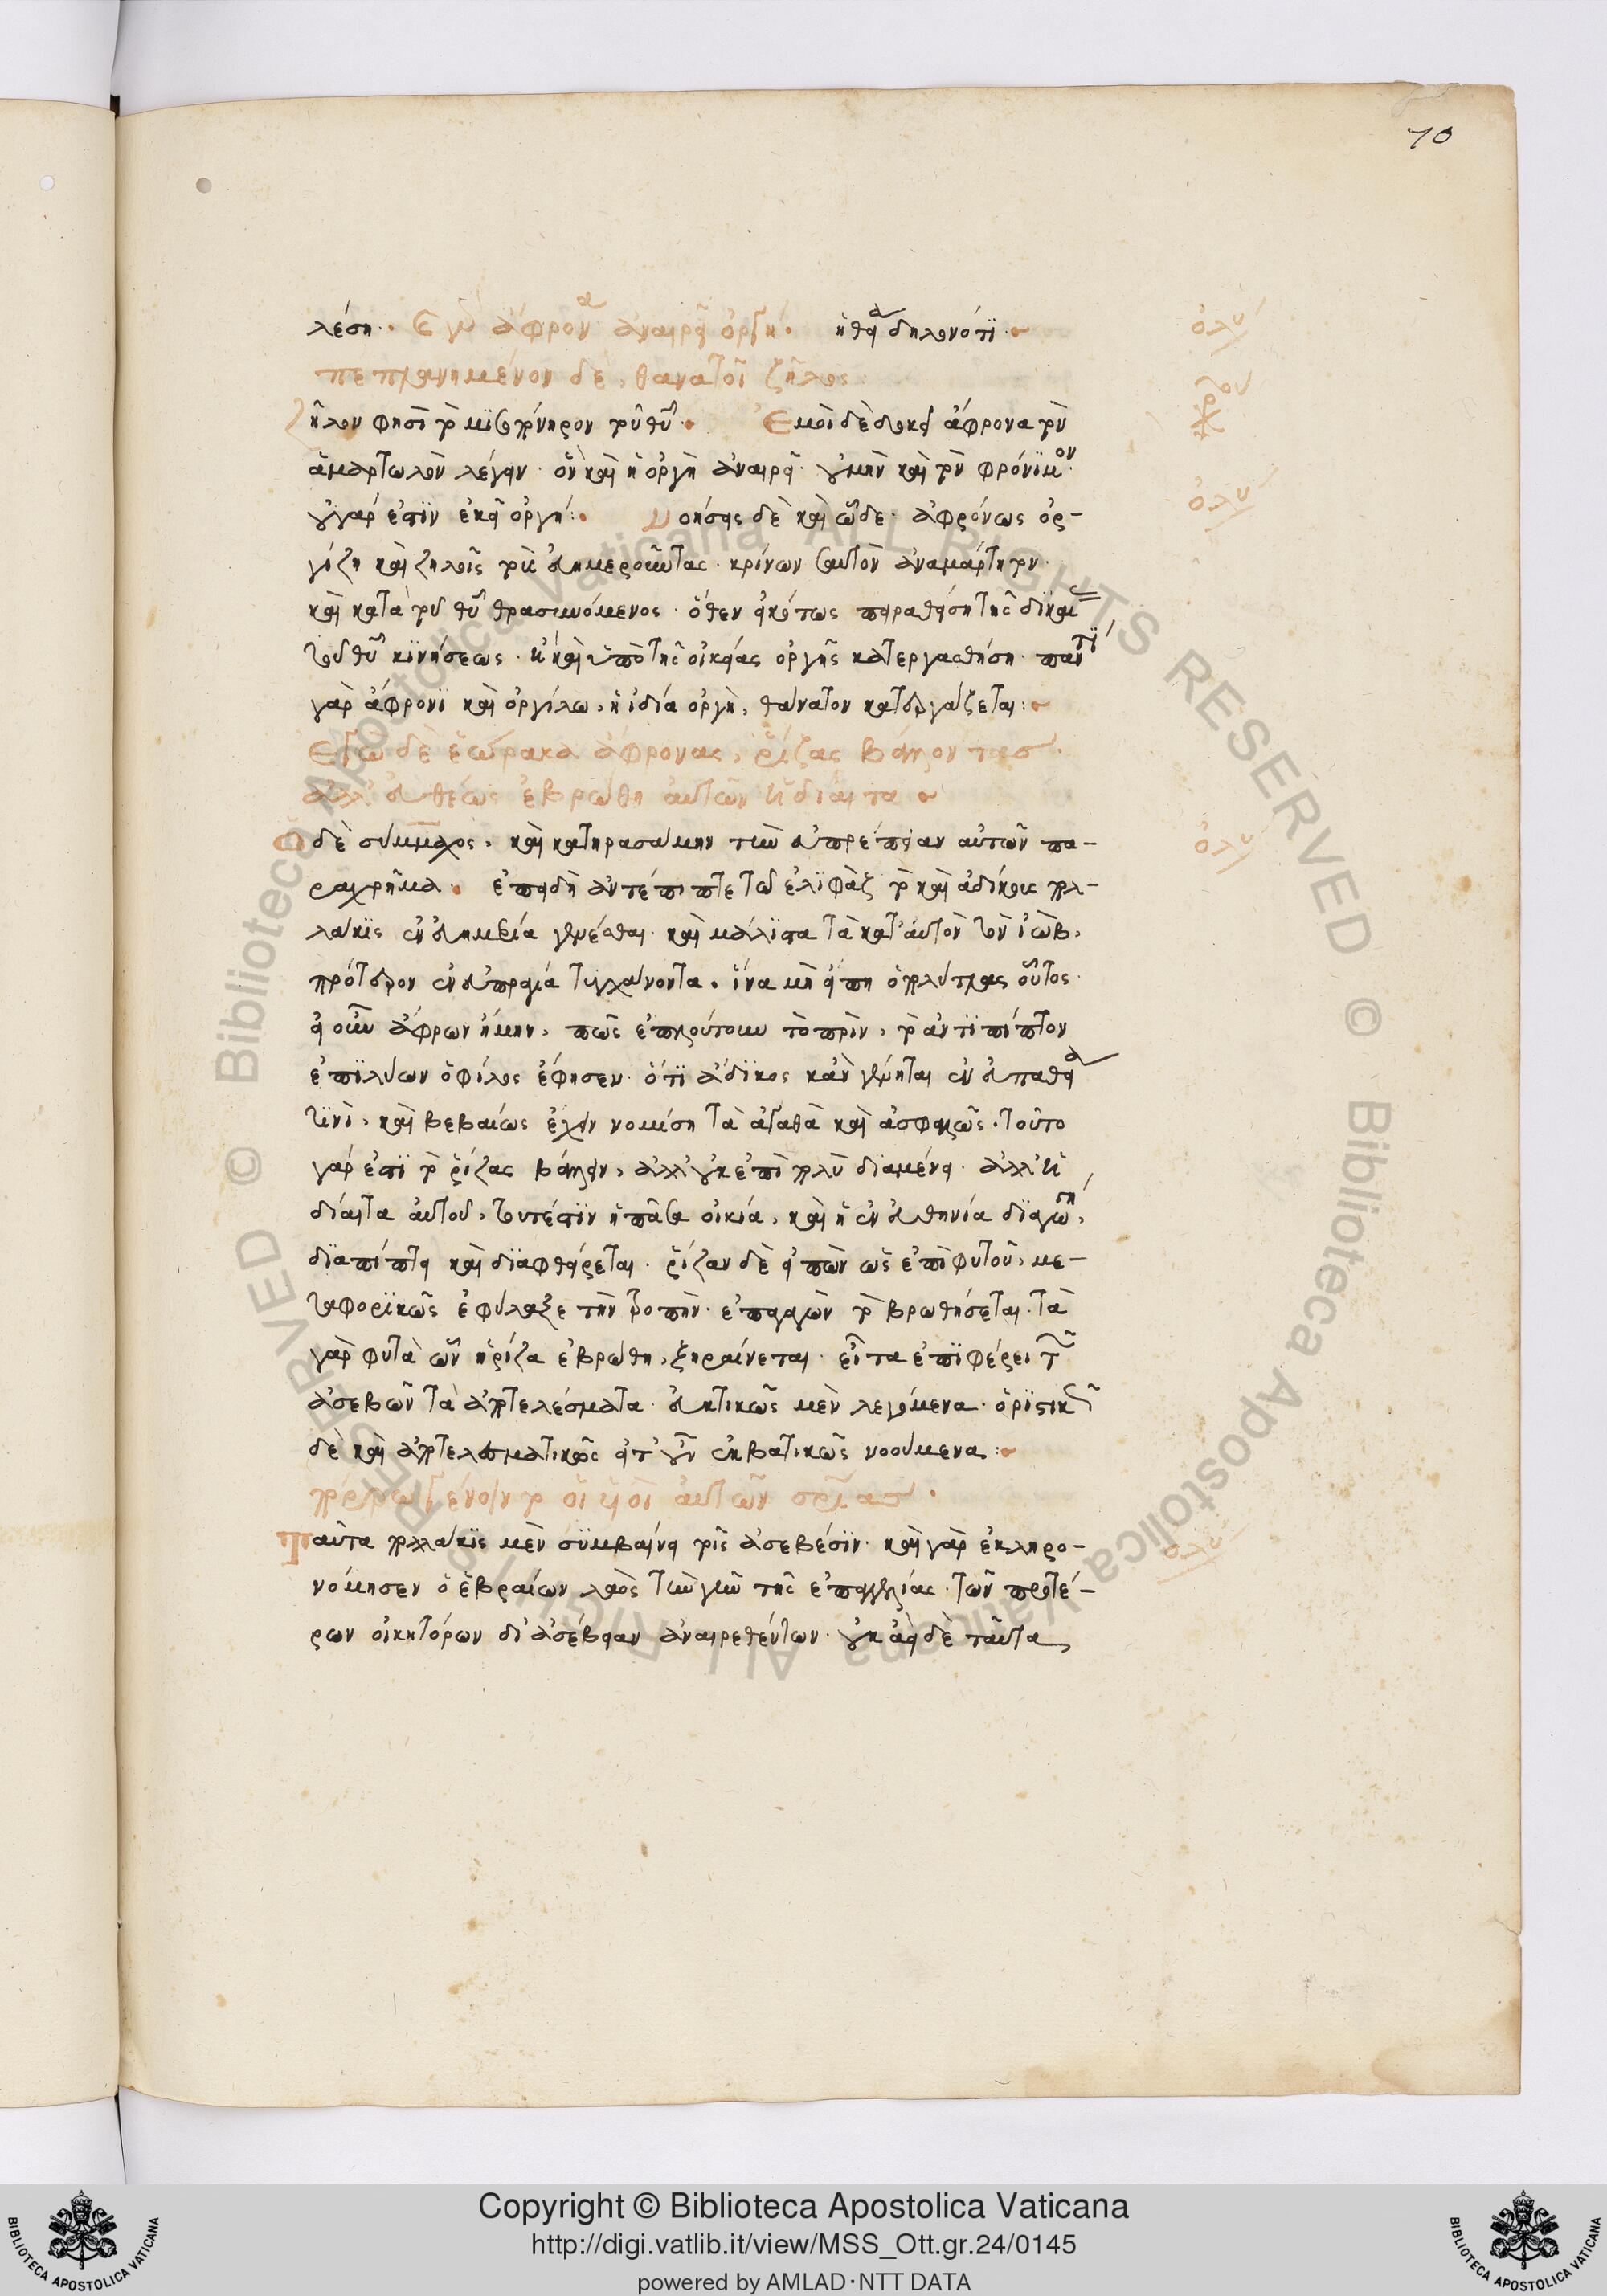 70
λέση· Καὶ γὰρ ἄφρονα ἀναιρεῖ ὀργή· ἡ θεία δηλονότι· ὀλυ
πεπλανημένον δὲ, θανατοῖ ζῆλος
ζῆλον φησὶ τὸ μισοπόνηρον τοῦ θυ· Ἐμοὶ δὲ δοκεῖ ἄφρονα τὸν
ἁμαρτωλὸν λέγειν· ὃν καὶ ἡ ὀργὴ ἀναιρεῖ· οὐ μὴν καὶ τὸν φρόνιμον·
οὐ γάρ ἐστιν ἐκεῖ ὀργή: Νοήσεις δὲ καὶ ὧδε· ἀφρόνως ὀρ- ὀλυ
γίζη καὶ ζηλοῖς τοὺς εὐημεροῦντας· κρίνων σαυτὸν ἀναμάρτητον·
καὶ κατὰ τοῦ θυ θρασυνόμενος· ὅθεν εἰκότως πειραθήση τῆς δικαίας
τοῦ θυ κινήσεως· ἢ καὶ ὑπὸ τῆς οἰκείας ὀργῆς κατεργασθήση· παντὶ
γὰρ ἄφρονι καὶ ὀργίλω, ἡ ἰδία ὀργὴ, θάνατον κατεργάζεται:
Εγὼ δὲ ἑώρακα ἄφρονας, ῥίζας βάλλοντας·
ἀλλ' εὐθέως ἐβρώθη αὐτῶν ἡ δίαιτα
Ὁ δὲ σύμμαχος, καὶ κατηρασάμην τὴν εὐπρέπειαν αὐτῶν πα- ὀλυ
ραχρῆμα· ἐπειδὴ ἀντέπιπτε τῶ ἐλιφὰζ τὸ καὶ ἀδίκους πολ-
λάκις ἐν εὐημερία γενέσθαι· καὶ μάλιστα τὰ κατ' αὐτὸν τὸν ἰὼβ,
πρότερον ἐν εὐπραγία τυγχάνοντα· ἵνα μὴ εἴπη ὁ πολύτλας οὗτος·
εἰ οὖν ἄφρων ἤμην, πῶς ἐπλούτουν τὸ πρὶν, τὸ ἀντιπίπτον
ἐπιλύων ὁ φίλος ἔφησεν· ὅτι ἄδικος κἂν γένηται ἐν εὐπαθεία
τινὶ, καὶ βεβαίως ἔχειν νομίση τὰ ἀγαθὰ καὶ ἀσφαλῶς· τοῦτο
γάρ ἐστι τὸ ῥίζας βάλλειν, ἀλλ' οὐκ ἐπὶ πολὺ διαμένει· ἀλλ' ἡ
δίαιτα αὐτοῦ, τουτέστιν ἡ πᾶσα οἰκία, καὶ ἡ ἐν εὐθηνία διαγωγὴ,
διαπίπτει καὶ διαφθείρεται· ῥίζαν δὲ εἰπὼν ὡς ἐπὶ φυτοῦ, με-
ταφορικῶς ἐφύλαξε τὴν τροπὴν· ἐπαγαγὼν τὸ βρωθήσεται· τὰ
γὰρ φυτὰ ὧν ἡ ῥίζα ἐβρώθη, ξηραίνεται· εἶτα ἐπιφέρει τῶν
ἀσεβῶν τὰ ἀποτελέσματα· εὐκτικῶς μὲν λεγόμενα· ὁριστικῶς
δὲ καὶ ἀποτελεσματικῶς εἴτ' οὖν ἐκβατικῶς νοούμενα:
πόρρω γένοιντο οἱ υἱοὶ αὐτῶν σρίας·
Ταῦτα πολλάκις μὲν συμβαίνει τοῖς ἀσεβέσιν· καὶ γὰρ ἐκληρο- ὀλυ
νόμησεν ὁ ἑβραίων λαὸς τὴν γῆν τῆς ἐπαγγελίας· τῶν προτέ-
ρων οἰκητόρων δι' ἀσέβειαν ἀναιρεθέντων· οὐκ ἀεὶ δὲ ταῦτα
Copyright © Biblioteca Apostolica Vaticana
http://digi.vatlib.it/view/MSS_Ott.gr.24/0145
powered by AMLAD·NTT DATA
BIBLIOTECA APOSTOLICA VATICANA
BIBLIOTECA APOSTOLICA VATICANA
© Biblioteca Apostolica Vaticana ALL RIGHTS RESERVED
© Biblioteca Apostolica Vaticana ALL RIGHTS RESERVED